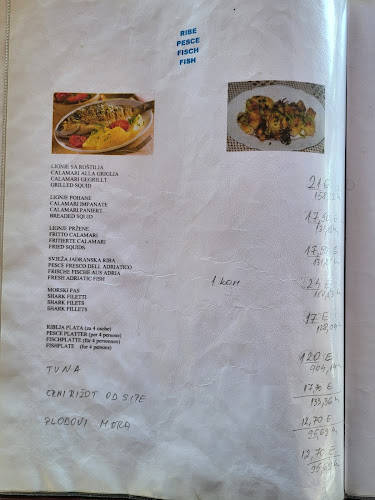 RIBE
PESCE
FISCH
FISH
LIGNJE SA ROŠTILJA
CALAMARI ALLA GRIGLIA
CALAMARI GEGRILLT
GRILLED SQUID
21 €
LIGNJE POHANE
CALAMARI IMPANATE
CALAMARI PANIERT
BREADED SQUID
17,50 €
LIGNJE PRŽENE
FRITTO CALAMARI
FRITIERTE CALAMARI
FRIED SQUIDS
17,50 €
SVJEŽA JADRANSKA RIBA
PESCE FRESCO DELL ADRIATICO
FRISCHE FISCHE AUS ADRIA
FRESH ADRIATIC FISH
1 kom
24 €
MORSKI PAS
SHARK FILETTI
SHARK FILETS
SHARK FILLETS
17 €
RIBLJA PLATA (za 4 osobe)
PESCE PLATTER (per 4 persone)
FISCHPLATTE (für 4 personnen)
FISHPLATE (for 4 persons)
120 €
TUNA
17,70 €
133,36
CRNI RIŽOT OD SIPE
12,70 €
95,69
PLODOVI MORA
12,70 €
95,69